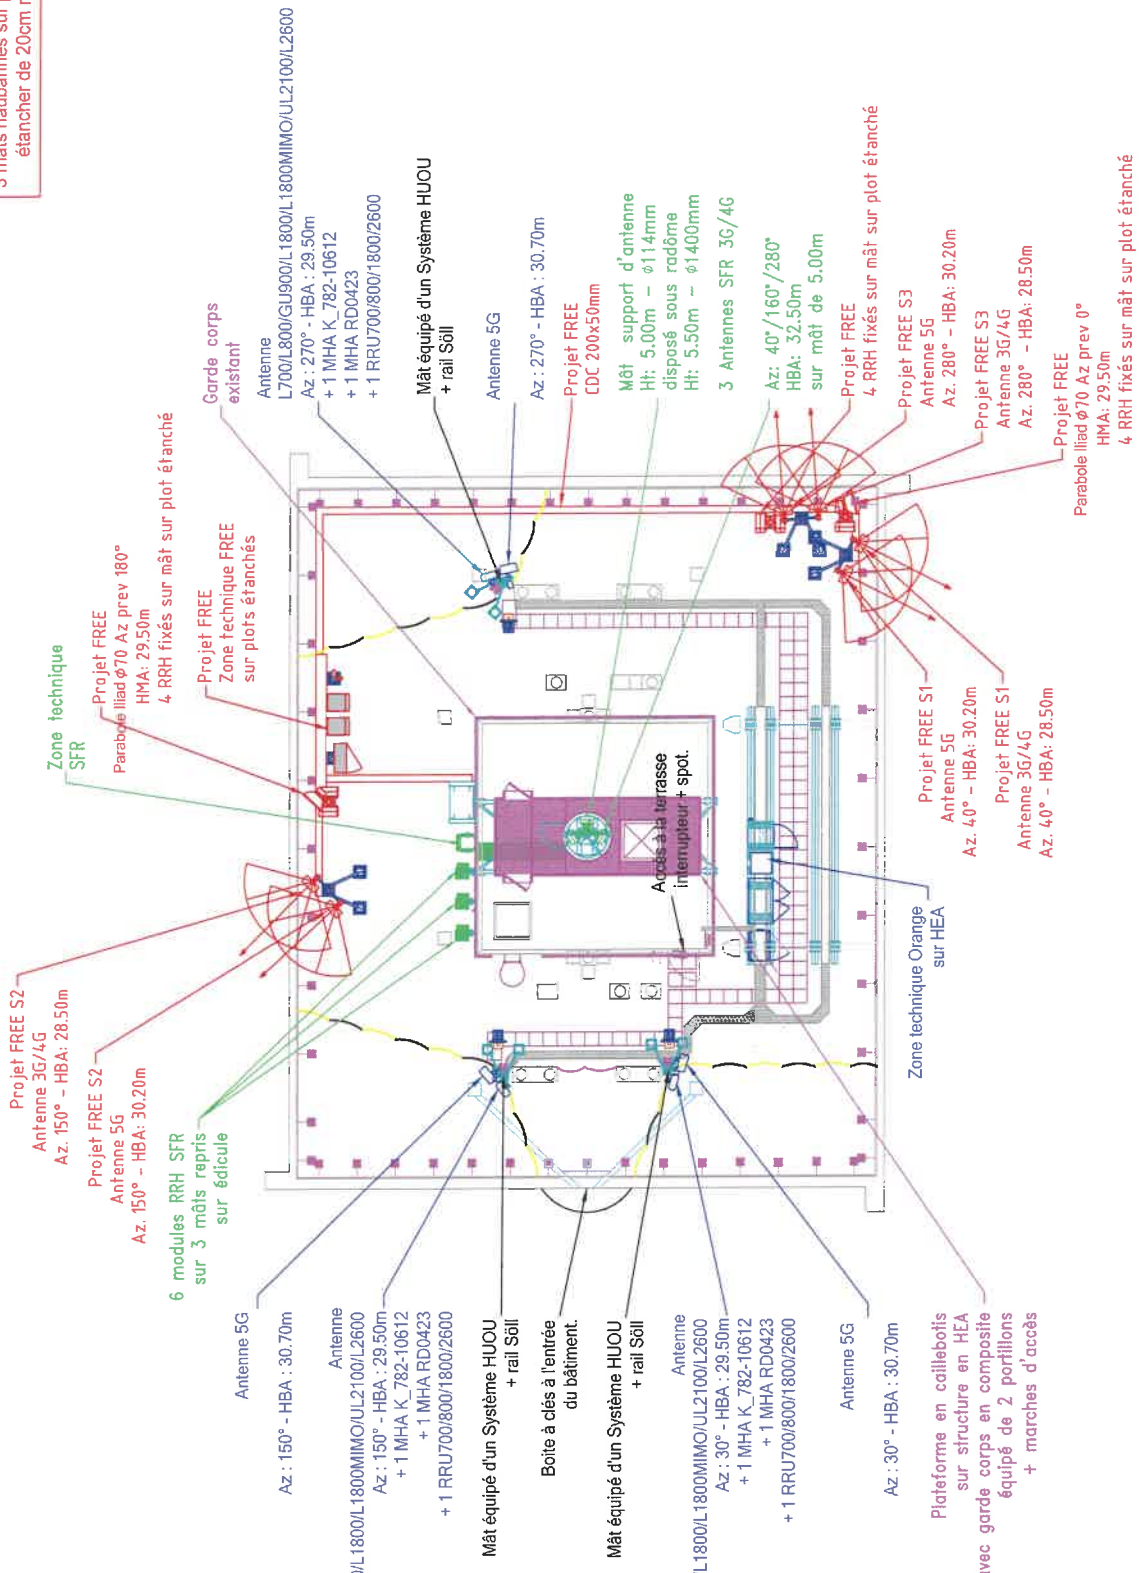 3 mâts haubannés sur
étancher de 20cm
Zone technique
SFR
Projet FREE
Parabole Iliad ø70 Az prev 180°
HMA: 29.50m
4 RRH fixés sur mât sur plot étanché
Projet FREE
Zone technique FREE
sur plots étanchés
Garde corps
existant
Antenne
L700/L800/GU900/L1800/L1800MIMO/UL2100/L2600
Az : 270° - HBA : 29.50m
+ 1 MHA K_782-10612
+ 1 MHA RD0423
+ 1 RRU700/800/1800/2600
Mât équipé d'un Système HUOU
+ rail Söll
Antenne 5G
Az : 270° - HBA : 30.70m
Projet FREE
CDC 200x50mm
Mât support d'antenne
Ht: 5.00m - ø114mm
disposé sous radôme
Ht: 5.50m - ø1400mm
3 Antennes SFR 3G/4G
Az: 40°/160°/280°
HBA: 32.50m
sur mât de 5.00m
Projet FREE
4 RRH fixés sur mât sur plot étanché
Projet FREE S3
Antenne 5G
Az. 280° - HBA: 30.20m
Projet FREE S3
Antenne 3G/4G
Az. 280° - HBA: 28.50m
Projet FREE
Parabole Iliad ø70 Az prev 0°
HMA: 29.50m
4 RRH fixés sur mât sur plot étanché
Projet FREE S2
Antenne 3G/4G
Az. 150° - HBA: 28.50m
Projet FREE S2
Antenne 5G
Az. 150° - HBA: 30.20m
6 modules RRH SFR
sur 3 mâts repris
sur édicule
Accès à la terrasse
interrupteur + spot.
Projet FREE S1
Antenne 5G
Az. 40° - HBA: 30.20m
Projet FREE S1
Antenne 3G/4G
Az. 40° - HBA: 28.50m
Zone technique Orange
sur HEA
Antenne 5G
Az : 150° - HBA : 30.70m
Antenne
/L1800/L1800MIMO/UL2100/L2600
Az : 150° - HBA : 29.50m
+ 1 MHA K_782-10612
+ 1 MHA RD0423
+ 1 RRU700/800/1800/2600
Mât équipé d'un Système HUOU
+ rail Söll
Boite à clés à l'entrée
du bâtiment.
Mât équipé d'un Système HUOU
+ rail Söll
Antenne
L1800/L1800MIMO/UL2100/L2600
Az : 30° - HBA : 29.50m
+ 1 MHA K_782-10612
+ 1 MHA RD0423
+ 1 RRU700/800/1800/2600
Antenne 5G
Az : 30° - HBA : 30.70m
Plateforme en caillebotis
sur structure en HEA
avec garde corps en composite
équipé de 2 portillons
+ marches d'accès